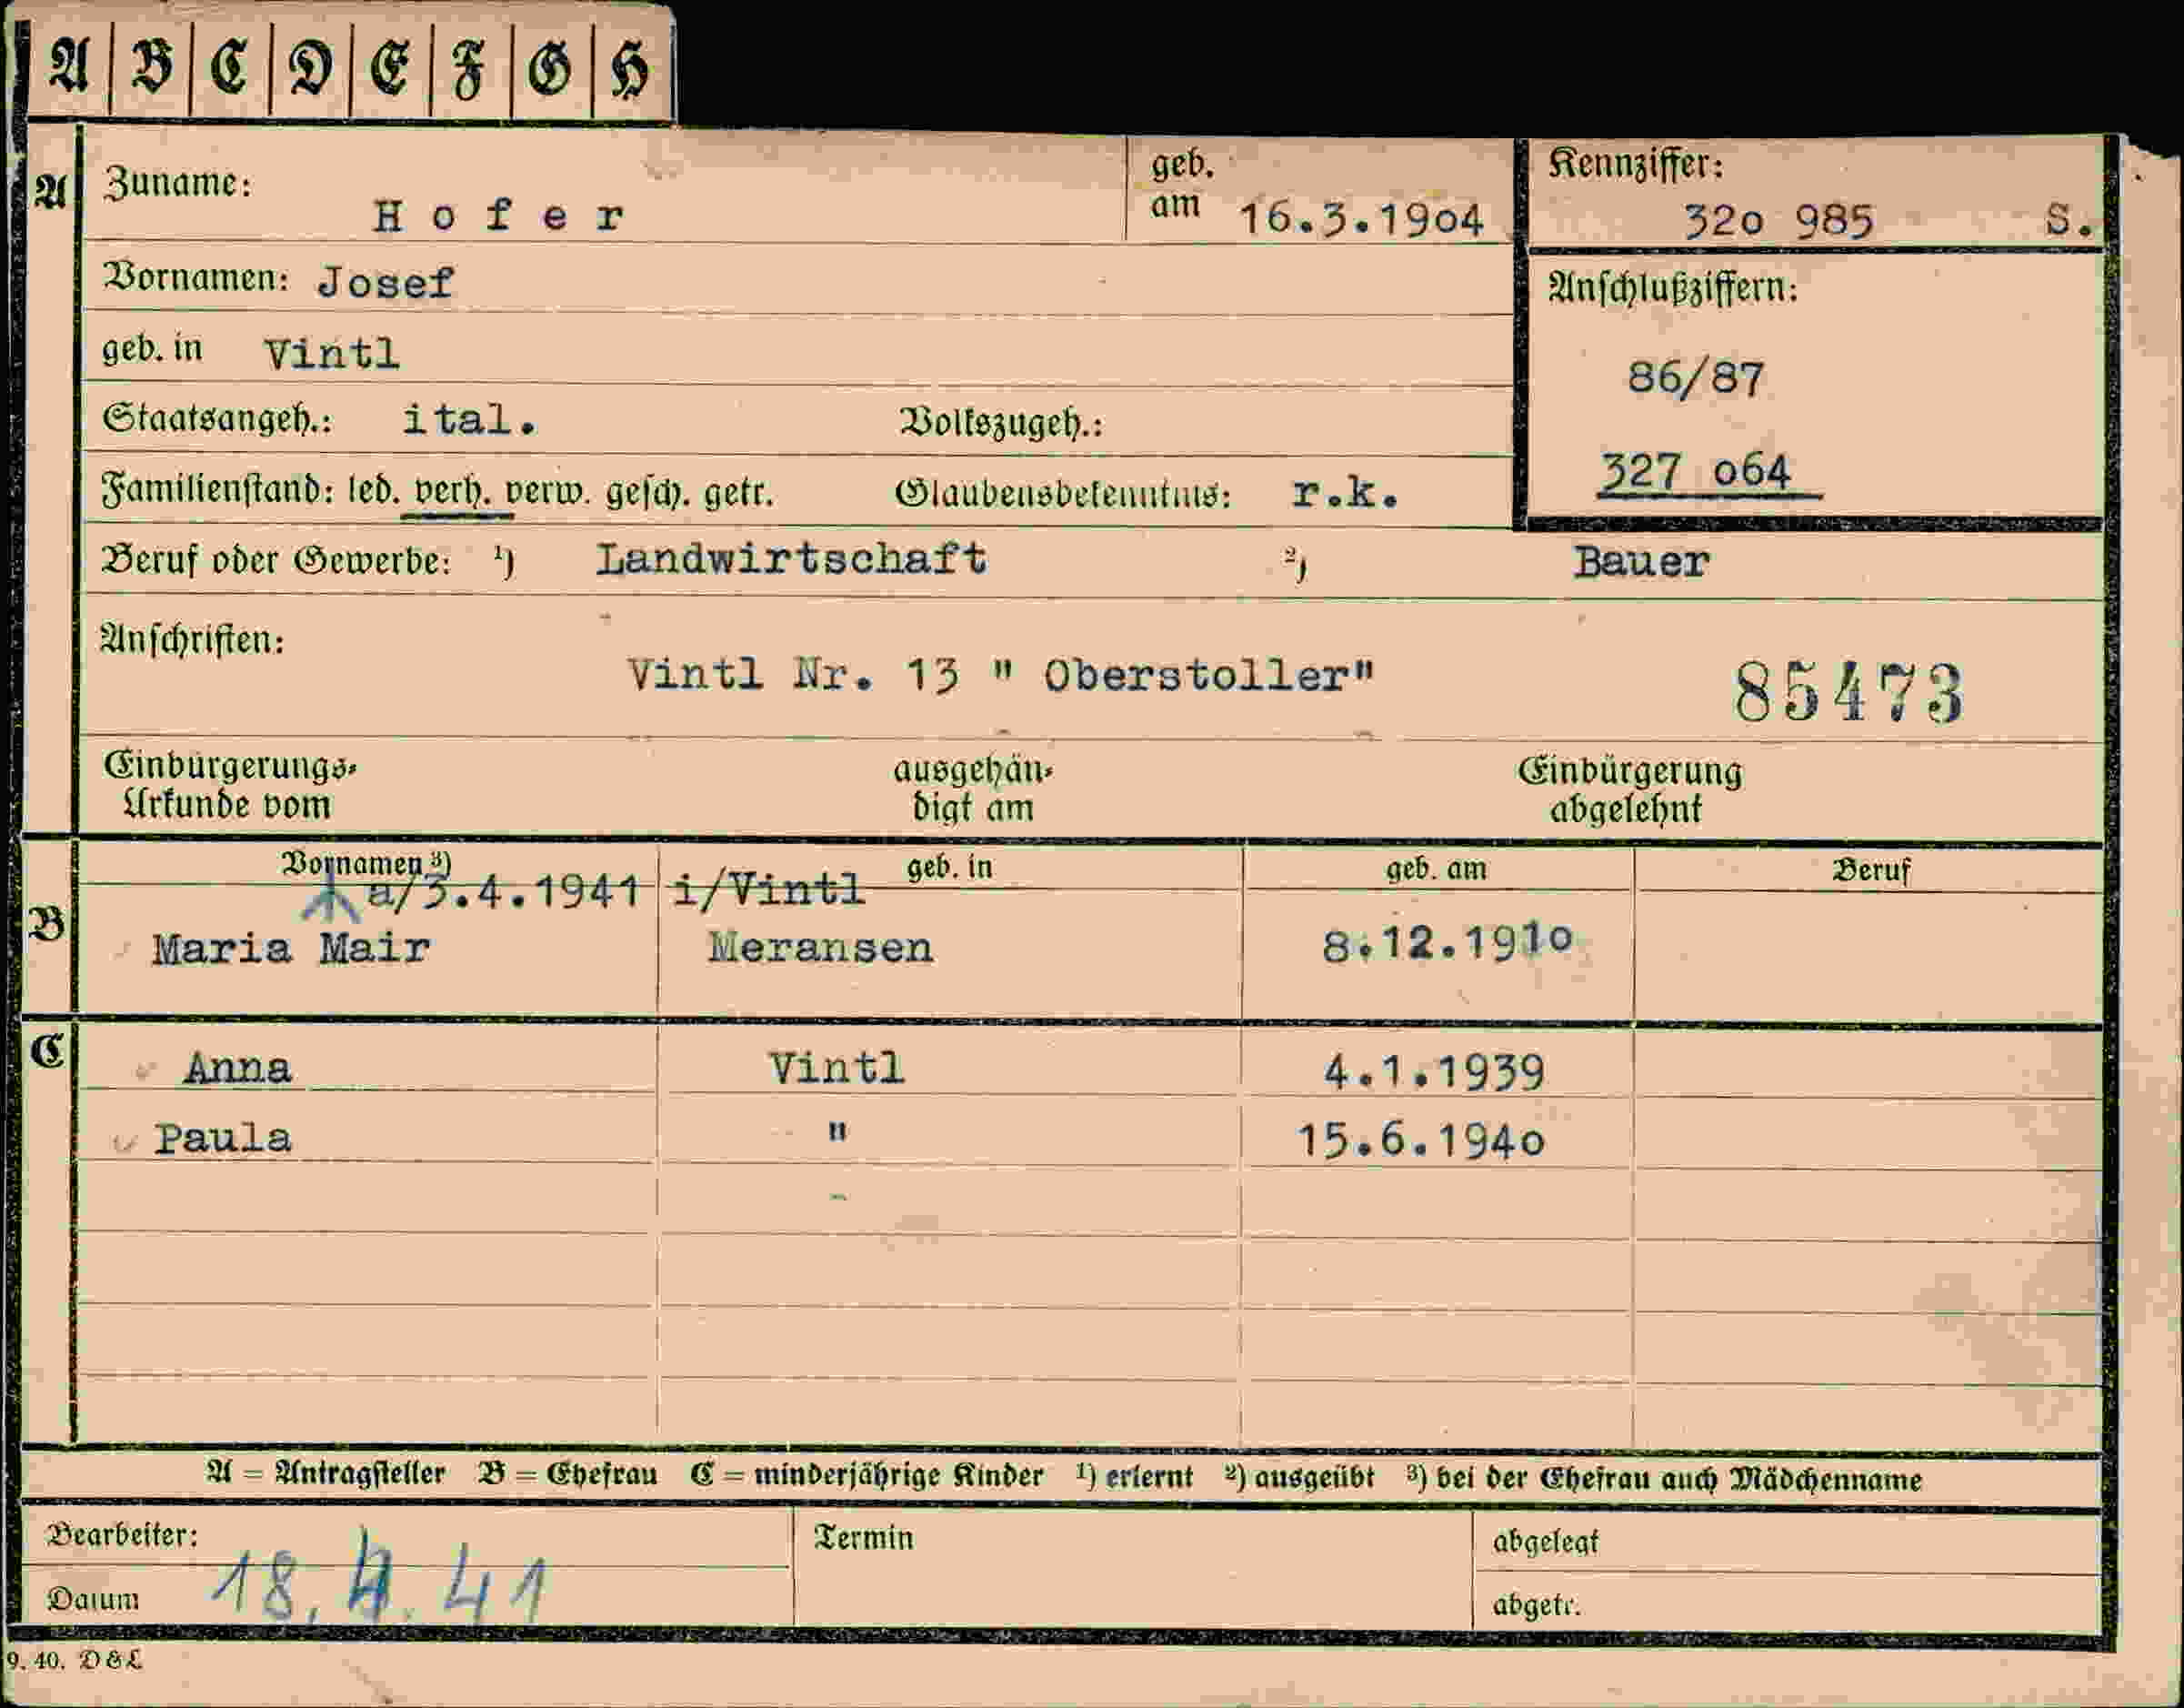 A B C D E F G H
A Zuname: Hofer geb. am 16.3.19o4 Kennziffer: 32o 985 S.
Vornamen: Josef Anschlußziffern:
geb. in Vintl 86/87
Staatsangeh.: ital. Volkszugeh.:
327 o64
Familienstand: led. verh. verw. gesch. getr. Glaubensbekenntnis: r.k.
Beruf oder Gewerbe: ¹) Landwirtschaft ²) Bauer
Anschriften:
Vintl Nr. 13 " Oberstoller" 85473
Einbürgerungs- ausgehän- Einbürgerung
Urkunde vom digt am abgelehnt
Vornamen ³) geb. in geb. am Beruf
a/3.4.1941 i/Vintl
B Maria Mair Meransen 8.12.191o
C Anna Vintl 4.1.1939
Paula " 15.6.194o
A = Antragsteller B = Ehefrau C = minderjährige Kinder ¹) erlernt ²) ausgeübt ³) bei der Ehefrau auch Mädchenname
Bearbeiter: Termin abgelegt
Datum 18.4.41 abgetr.
9. 40. D&L